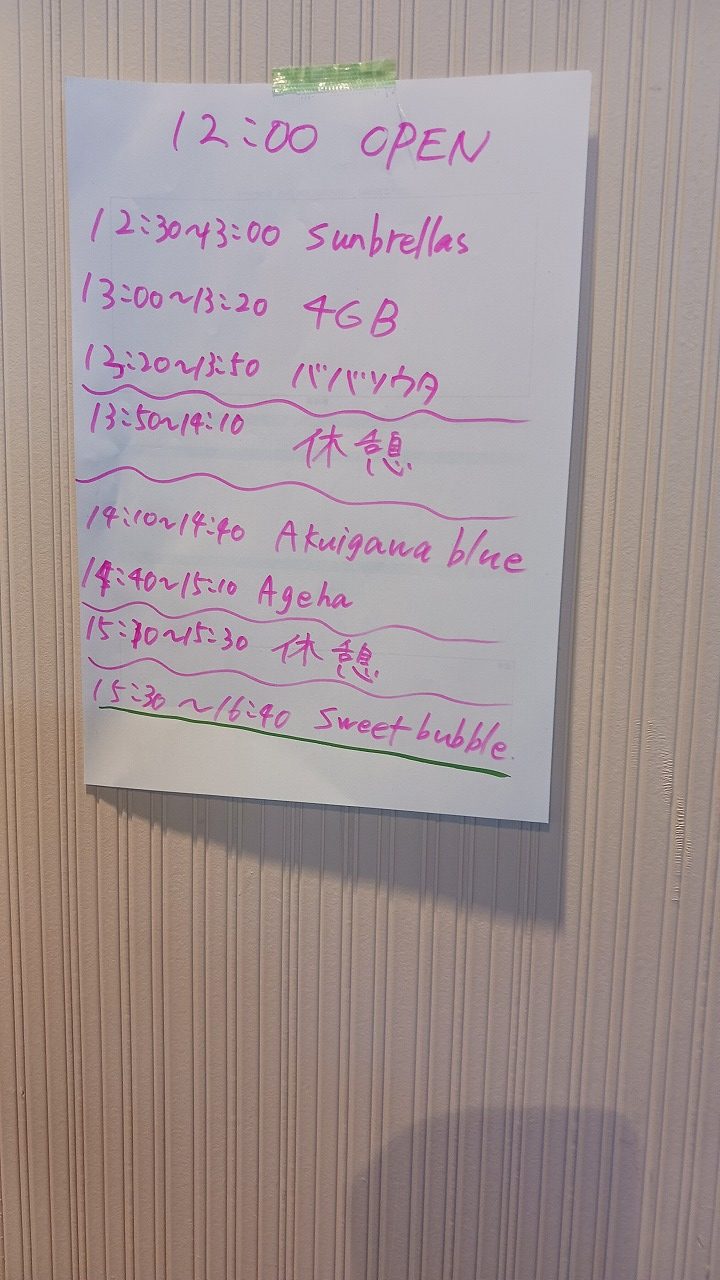 12:00 OPEN
12:30~13:00 sunbrellas
13:00~13:20 4GB
13:20~13:50 ババソウタ
13:50~14:10 休憩
14:10~14:40 Akuigawa blue
14:40~15:10 Ageha
15:10~15:30 休憩
15:30~16:40 sweet bubble